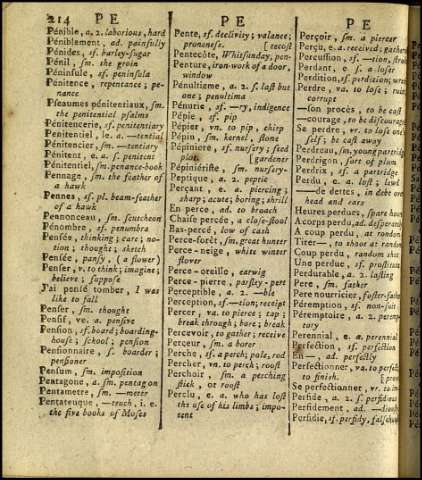 214 P E P E P E
Pénible, a. 2. laborious, hard
Péniblement, ad. painfully
Pénides, sf. barley-sugar
Pénil, sm. the groin
Péninsule, sf. peninsula
Pénitence, repentance; pe-
nance
Pseaumes pénitentiaux, sm.
the penitential psalms
Pénitencerie, sf. penitentiary
Pénitentiel, le. a. —tential
Pénitencier, sm. —tentiary
Pénitent, e. a. s. penitent
Pénitentiel, sm. penance-book
Pennage, sm. the feather of
a hawk
Pennes, sf. pl. beam-feather
of a hawk
Penonceau, sm. scutcheon
Pénombre, sf. penumbra
Pensée, thinking; care; no-
tion; thought; sketch
Pensée, pansy, (a flower)
Penser, v. to think; imagine;
believe; suppose
J'ai pensé tomber, I was
like to fall
Penser, sm. thought
Pensif, ve. a. pensive
Pension, sf. board; boarding-
house; school; pension
Pensionnaire, s. boarder;
pensioner
Pensum, sm. imposition
Pentagone, a. sm. pentagon
Pentametre, sm. —meter
Pentateuque, —teuch, i. e.
the five books of Moses
Pente, sf. declivity; valance;
proneness. [tecost
Pentecôte, Whitsunday, pen-
Penture, iron-work of a door,
window
Pénultieme, a. 2. last but
one; penultima
Pénurie, sf. —ry, indigence
Pépie, sf. pip
Pépier, vn. to pip, chirp
Pépin, sm. kernel, stone
Pépiniere, sf. nursery; seed
plot [gardener
Pépiniériste, sm. nursery-
Peptique, a. 2. peptic
Perçant, e. a. piercing;
sharp; acute; boring; shrill
En perce, ad. to broach
Chaise percée, a close-stool
Bas-percé, low of cash
Perce-forêt, sm. great hunter
Perce-neige, white winter
flower
Perce-oreille, earwig
Perce-pierre, parsley-pert
Perceptible, a. 2. —ble
Perception, sf. —tion; receipt
Percer, va. to pierce; tap;
break through; bore; break
Percevoir, to gather; receive
Perceur, sm. a borer
Perche, sf. a perch; pole, rod
Percher, vn. to perch; roost
Perchoir, sm. a perching
stick, or roost
Perclu, e. a. who has lost
the use of his limbs; impo-
tent
Perçoir, sm. a piercer
Perçu, e. a. received; gather
Percussion, sf. —tion, strok
Perdant, e. s. a loser
Perdition, sf. perdition; wre
Perdre, va. to lose; ruin
corrupt
—son procès, to be cast
—courage, to be discourage
Se perdre, vr. to lose one
self; be cast away
Perdreau, sm. young partridg
Perdrigon, sort of plum
Perdrix, sf. a partridge
Perdu, e. a. lost; lewd
—de dettes, in debt over
head and ears
Heures perdues, spare hours
A corps perdu, ad. desperatel
A coup perdu, at random
Tirer—, to shoot at random
Coup perdu, random shot
Une perdue, sf. prostitute
Perdurable, a. 2. lasting
Pere, sm. father
Pere nourricier, foster-father
Péremption, sf. non-suit
Péremptoire, a. 2. peremp
tory
Perennial, e. a. perennial
Perfection, sf. perfection
En—, ad. perfectly
Perfectionner, va. to perfect
to finish.
Se perfectionner, vr. to im
Perfide, a. 2. s. perfidious
Perfidement, ad. —diously
Perfidie, sf. perfidy, falsehood